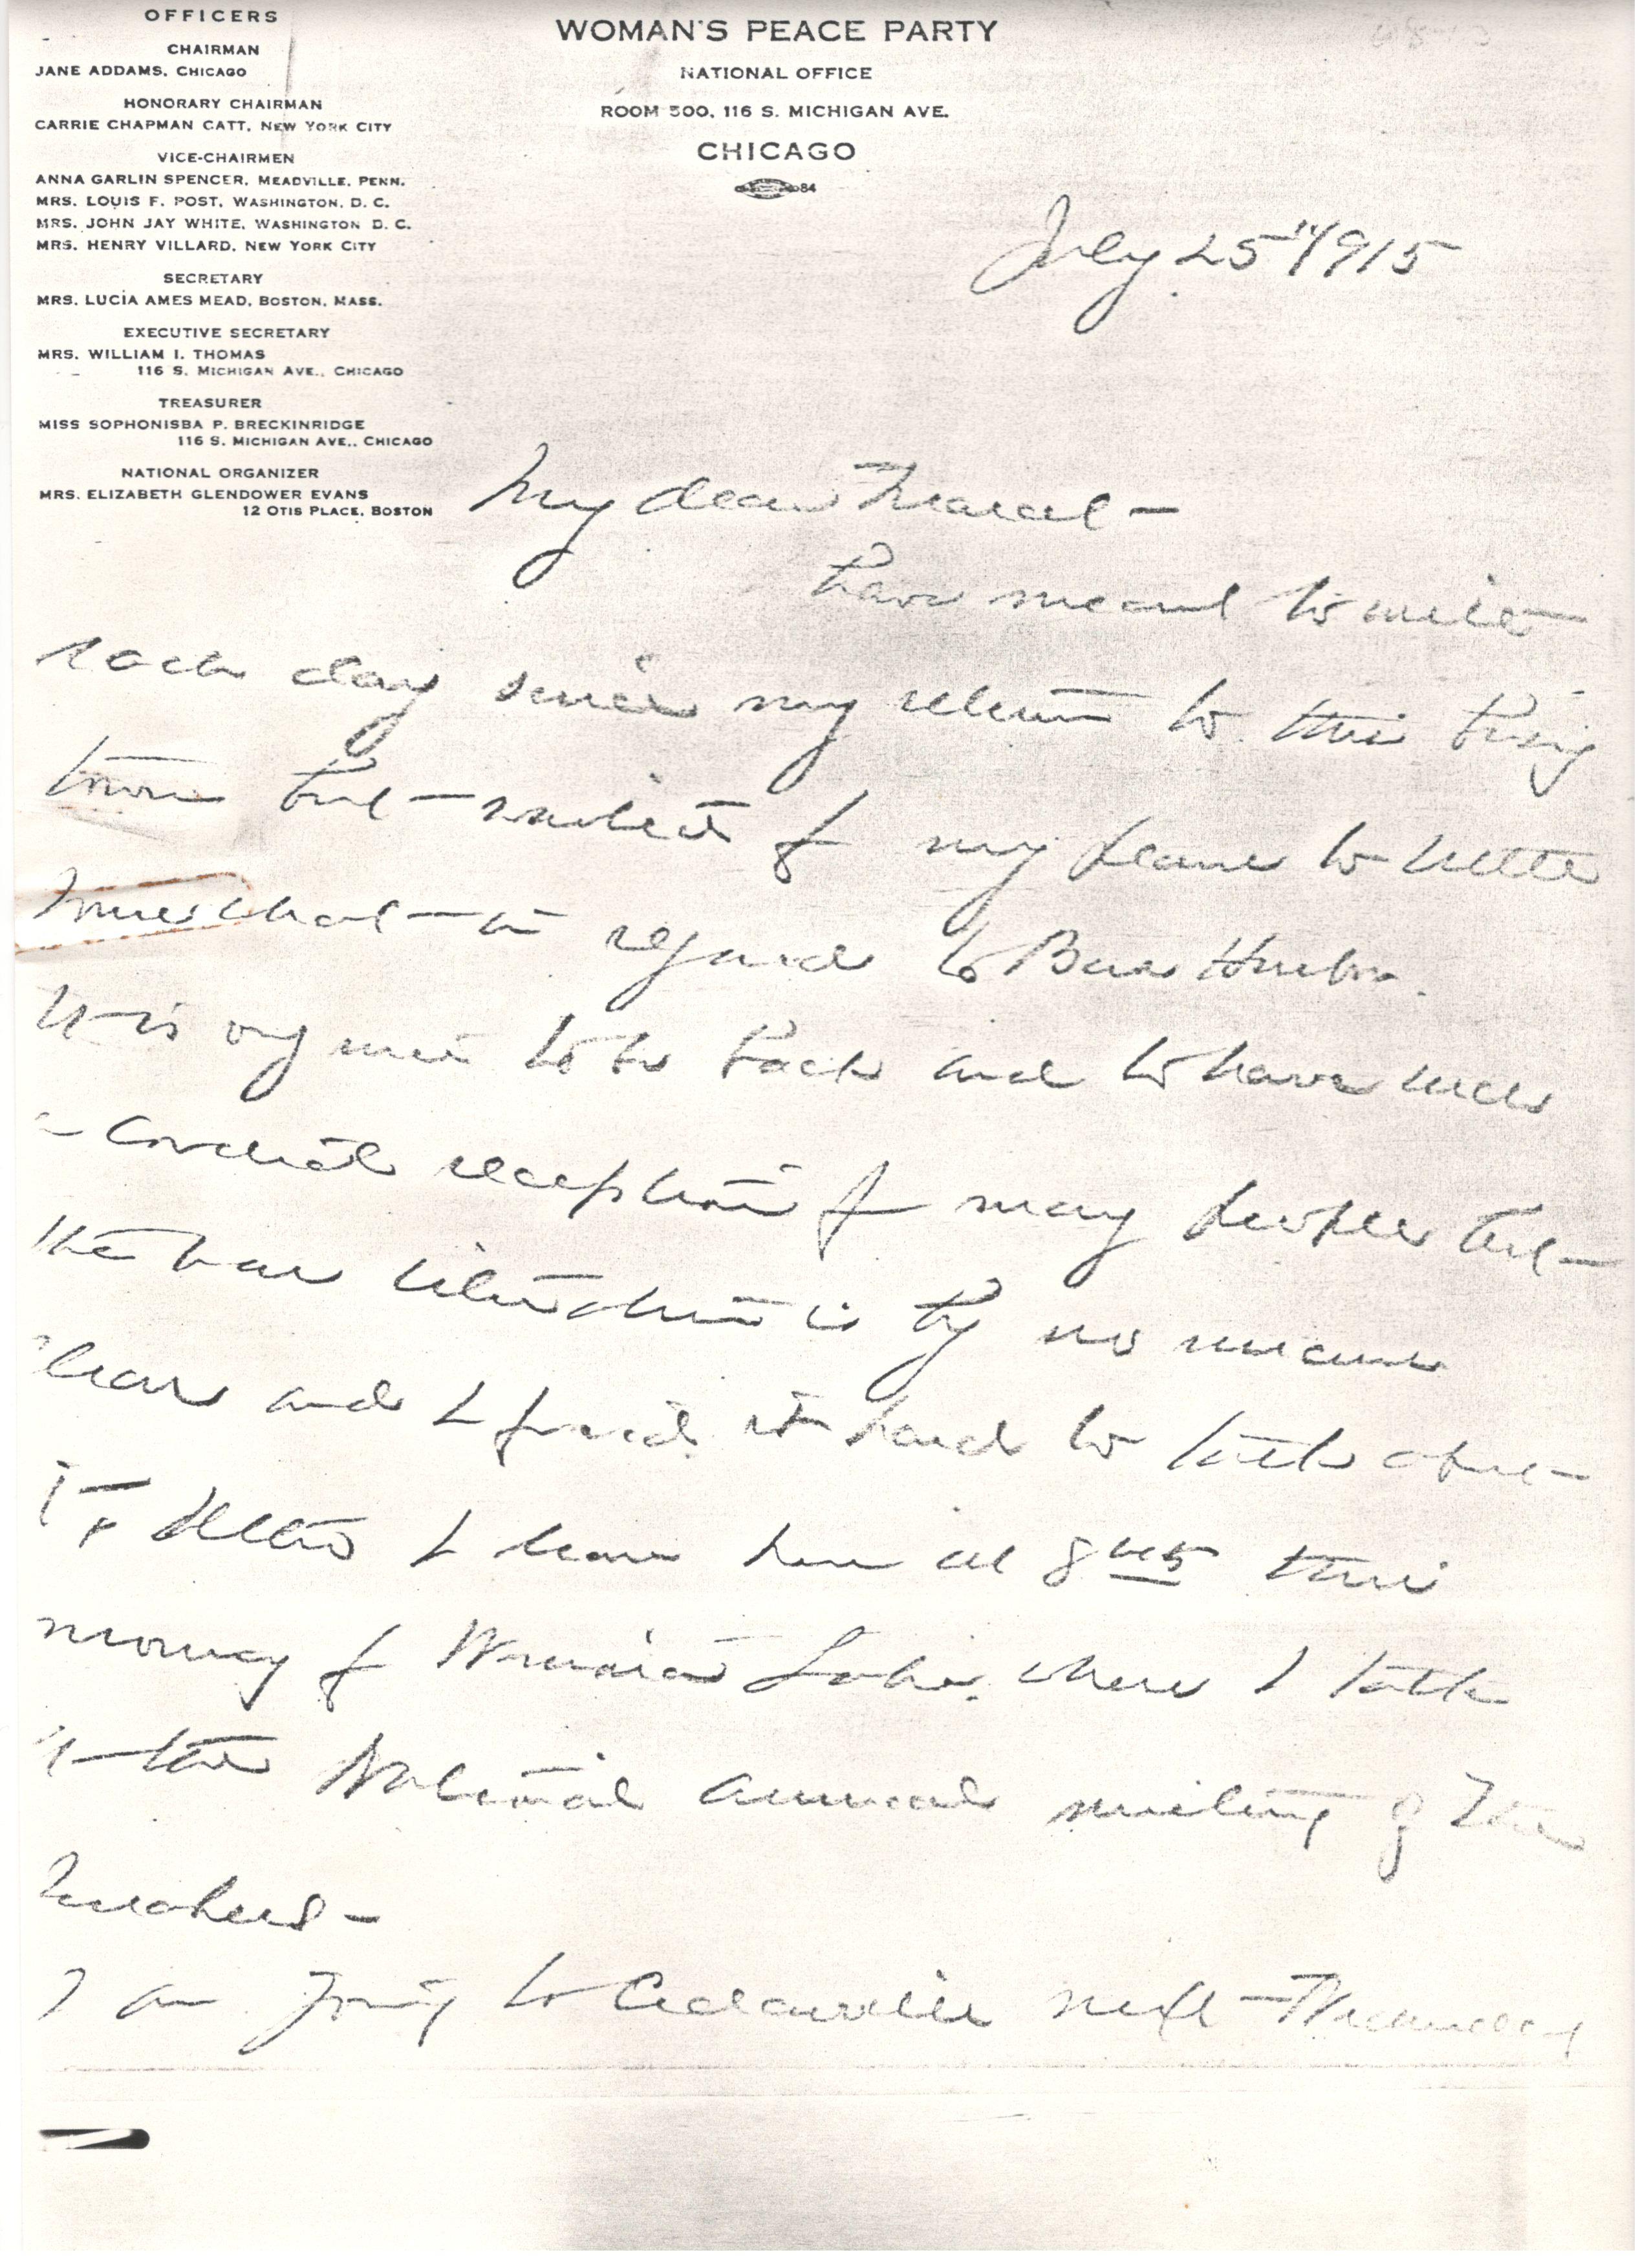 OFFICERS
CHAIRMAN
JANE ADDAMS, CHICAGO
HONORARY CHAIRMAN
CARRIE CHAPMAN CATT, NEW YORK CITY
VICE-CHAIRMEN
ANNA GARLIN SPENCER, MEADVILLE, PENN.
MRS. LOUIS F. POST, WASHINGTON, D. C.
MRS. JOHN JAY WHITE, WASHINGTON D. C.
MRS. HENRY VILLARD, NEW YORK CITY
SECRETARY
MRS. LUCIA AMES MEAD, BOSTON, MASS.
EXECUTIVE SECRETARY
MRS. WILLIAM I. THOMAS
116 S. MICHIGAN AVE., CHICAGO
TREASURER
MISS SOPHONISBA P. BRECKINRIDGE
116 S. MICHIGAN AVE., CHICAGO
NATIONAL ORGANIZER
MRS. ELIZABETH GLENDOWER EVANS
12 OTIS PLACE, BOSTON
WOMAN'S PEACE PARTY
NATIONAL OFFICE
ROOM 500, 116 S. MICHIGAN AVE.
CHICAGO
84
July 25" 1915
My dear Marcet -
have meant to write
each day since my return to this busy
town but waited for my plans to settle
somewhat - in regard to Bar Harbor.
It is very nice to be back and to have such
a cordial reception from many people but -
the war situation is by no means
clear and I find it hard to talk about
I leave here at 8 this
morning for Winona Lake, where I talk
at the National annual meeting of the
Quakers -
I am going to Cedarville next - Wednesday